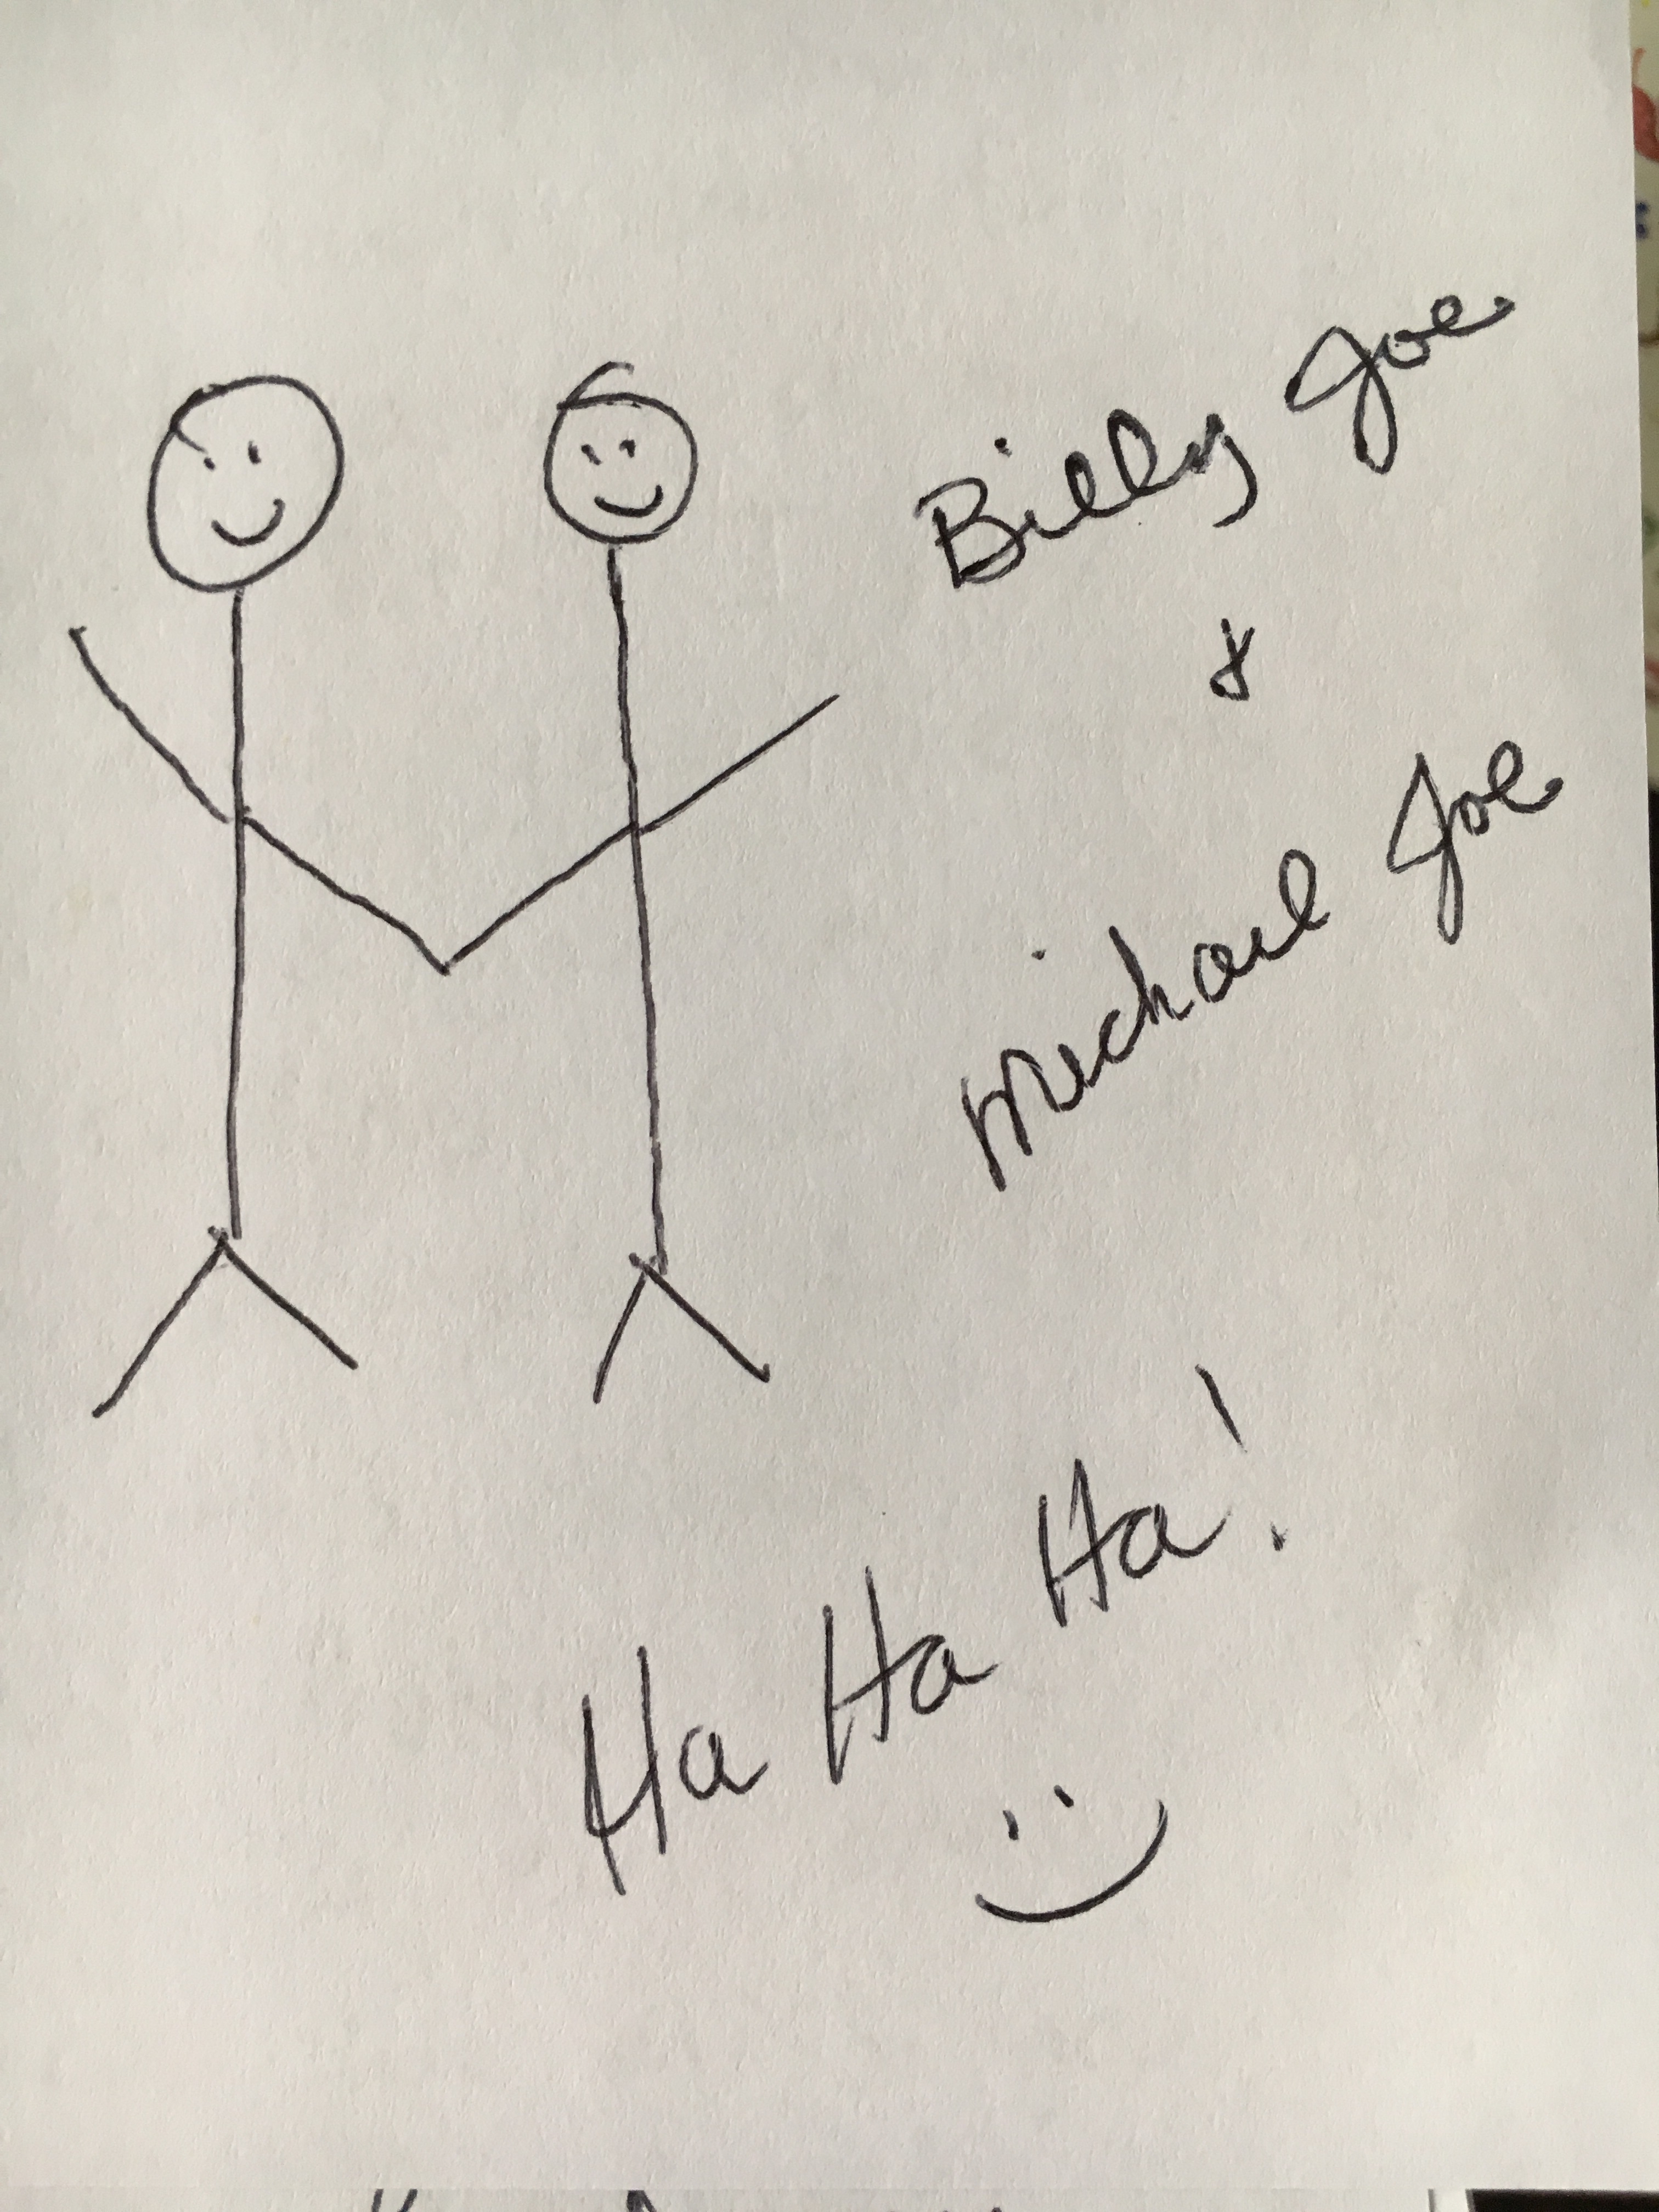 Billy Joe
&
Michael Joe
Ha Ha Ha!